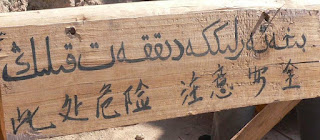 بىخەتەرلىككە دىققەت قىلىڭ
此处危险 注意安全